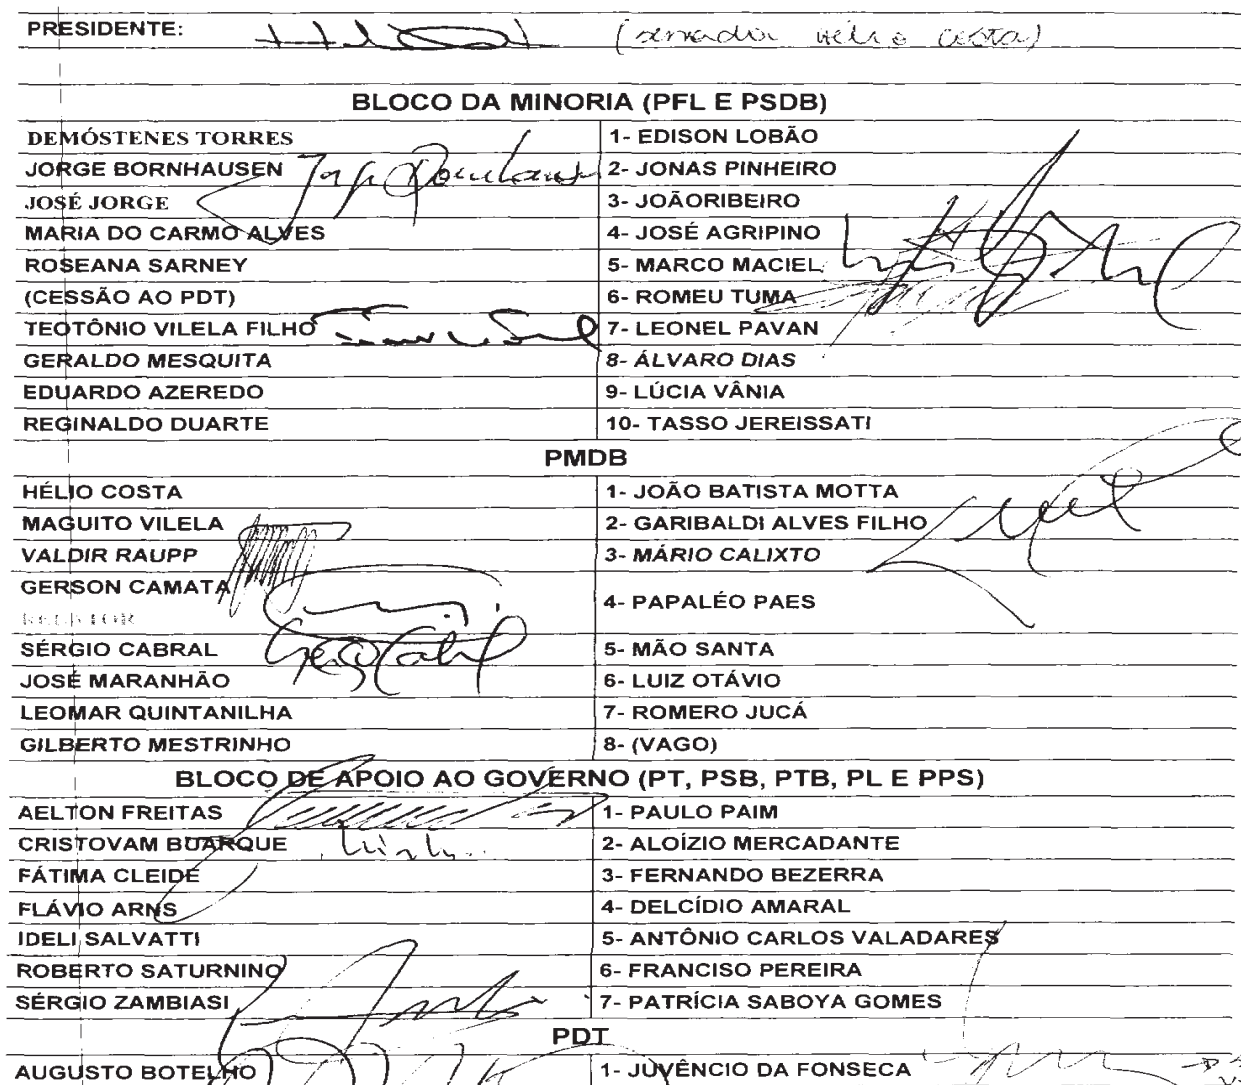 PRESIDENTE: (senador Hélio Costa)
BLOCO DA MINORIA (PFL E PSDB)
DEMÓSTENES TORRES 1- EDISON LOBÃO
JORGE BORNHAUSEN 2- JONAS PINHEIRO
JOSÉ JORGE 3- JOÃORIBEIRO
MARIA DO CARMO ALVES 4- JOSÉ AGRIPINO
ROSEANA SARNEY 5- MARCO MACIEL
(CESSÃO AO PDT) 6- ROMEU TUMA
TEOTÔNIO VILELA FILHO 7- LEONEL PAVAN
GERALDO MESQUITA 8- ÁLVARO DIAS
EDUARDO AZEREDO 9- LÚCIA VÂNIA
REGINALDO DUARTE 10- TASSO JEREISSATI
PMDB
HÉLIO COSTA 1- JOÃO BATISTA MOTTA
MAGUITO VILELA 2- GARIBALDI ALVES FILHO
VALDIR RAUPP 3- MÁRIO CALIXTO
GERSON CAMATA 4- PAPALÉO PAES
RELATOR
SÉRGIO CABRAL 5- MÃO SANTA
JOSÉ MARANHÃO 6- LUIZ OTÁVIO
LEOMAR QUINTANILHA 7- ROMERO JUCÁ
GILBERTO MESTRINHO 8- (VAGO)
BLOCO DE APOIO AO GOVERNO (PT, PSB, PTB, PL E PPS)
AELTON FREITAS 1- PAULO PAIM
CRISTOVAM BUARQUE 2- ALOÍZIO MERCADANTE
FÁTIMA CLEIDE 3- FERNANDO BEZERRA
FLÁVIO ARNS 4- DELCÍDIO AMARAL
IDELI SALVATTI 5- ANTÔNIO CARLOS VALADARES
ROBERTO SATURNINO 6- FRANCISO PEREIRA
SÉRGIO ZAMBIASI 7- PATRÍCIA SABOYA GOMES
PDT
AUGUSTO BOTELHO 1- JUVÊNCIO DA FONSECA